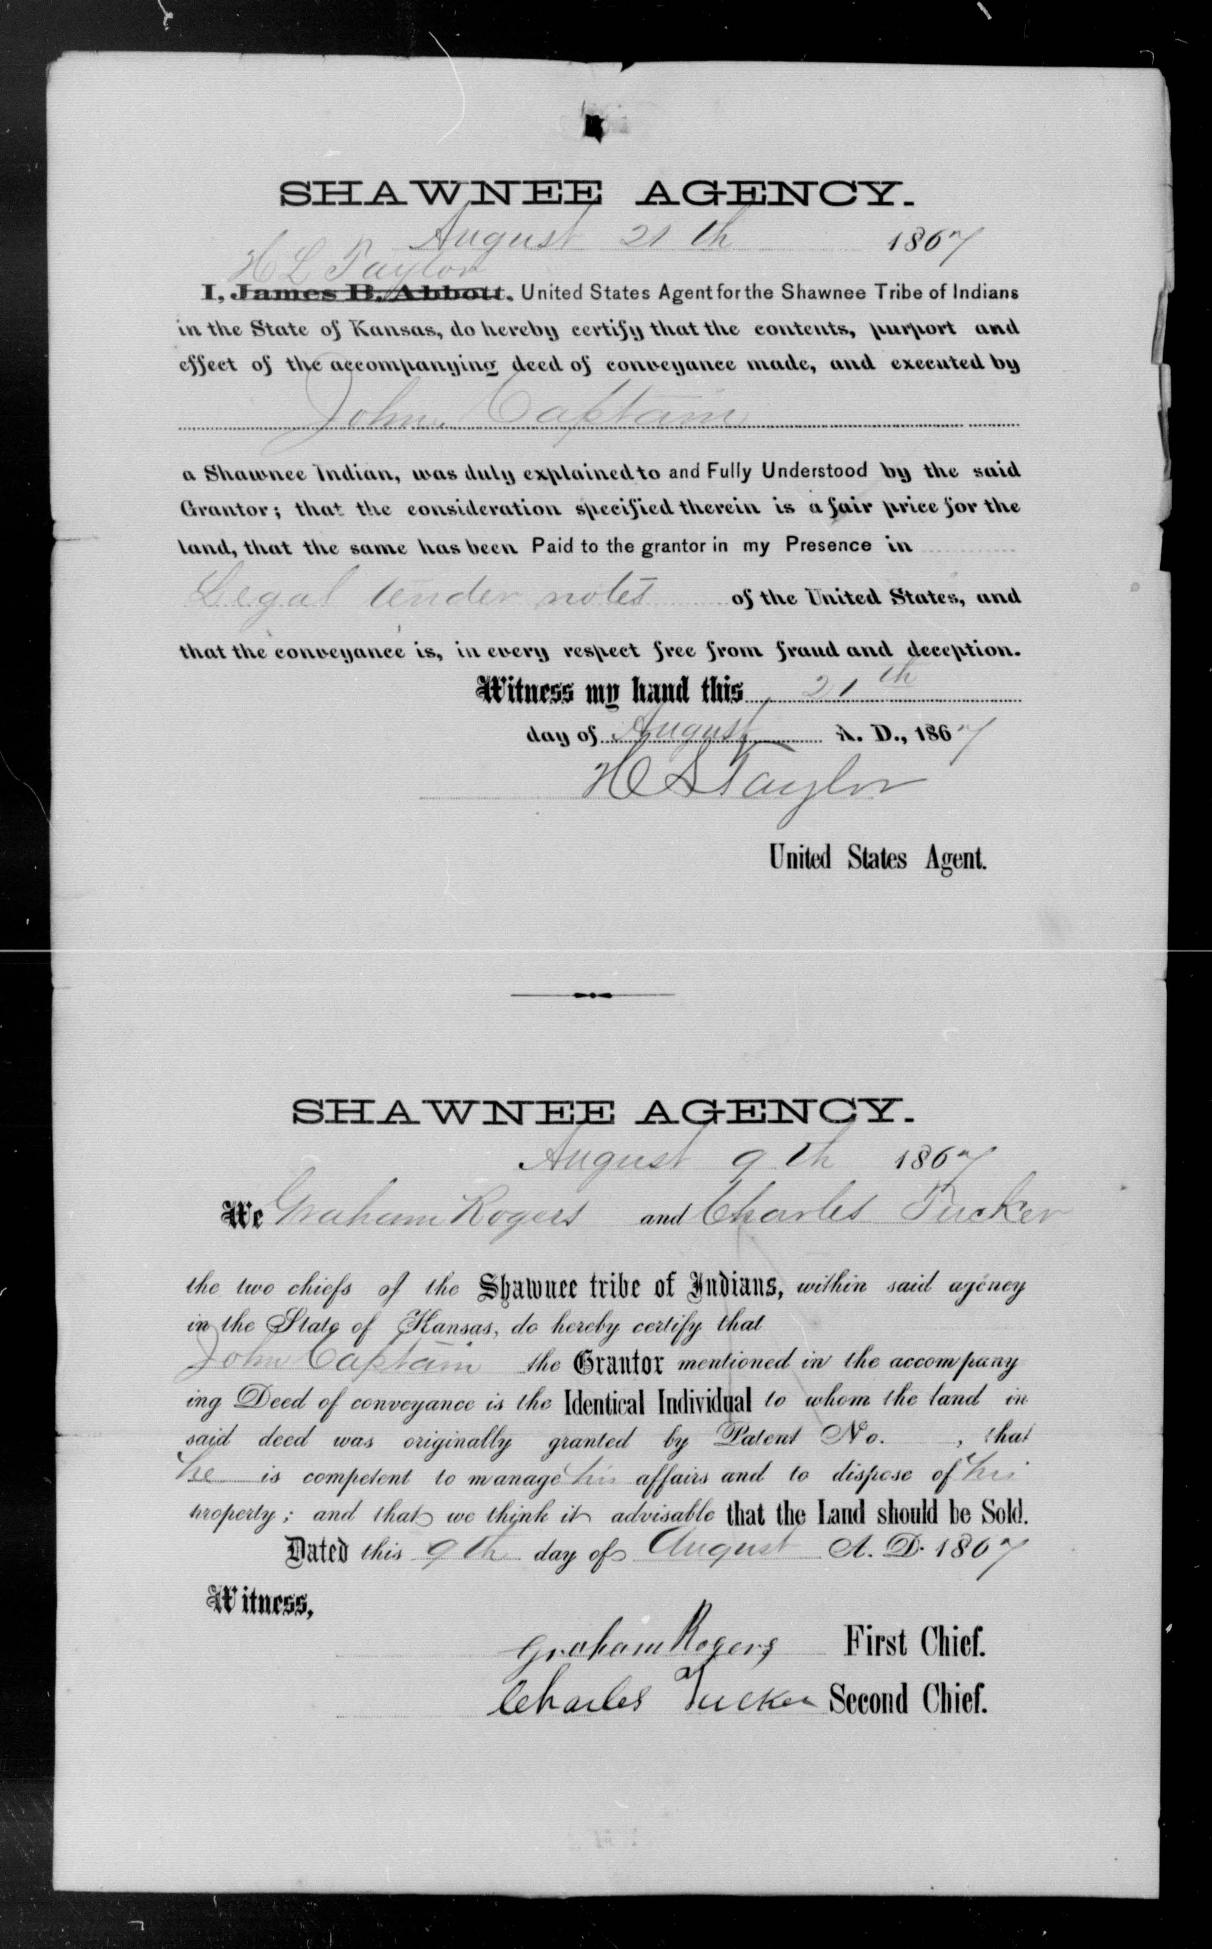 SHAWNEE AGENCY.
August 21th 1867
H L Taylor
I, James B. Abbott. United States Agent for the Shawnee Tribe of Indians
in the State of Kansas, do hereby certify that the contents, purport and
effect of the accompanying deed of conveyance made, and executed by
John Captain
a Shawnee Indian, was duly explained to and Fully Understood by the said
Grantor; that the consideration specified therein is a fair price for the
land, that the same has been Paid to the grantor in my Presence in
Legal tender notes of the United States, and
that the conveyance is, in every respect free from fraud and deception.
Witness my hand this 21th
day of August A. D., 1867
H L Taylor
United States Agent.
SHAWNEE AGENCY.
August 9th 1867
We Graham Rogers and Charles Tucker
the two chiefs of the Shawnee tribe of Indians, within said agency
in the State of Kansas, do hereby certify that
John Captain the Grantor mentioned in the accompany
ing Deed of conveyance is the Identical Individual to whom the land in
said deed was originally granted by Patent No. , that
he is competent to manage his affairs and to dispose of his
property; and that we think it advisable that the Land should be Sold.
Dated this 9th day of August A. D. 1867
Witness,
Graham Rogers First Chief.
Charles Tucker Second Chief.